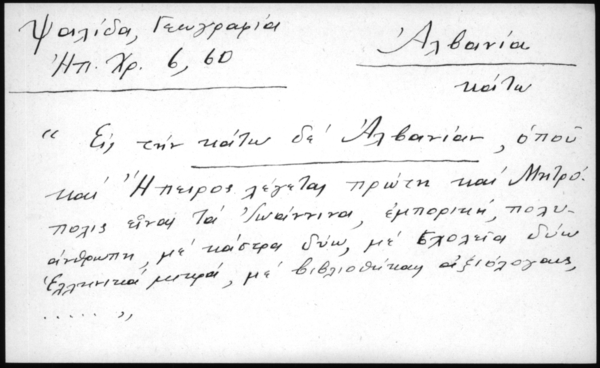 Ψαλίδα, Γεωγραφία
Ἠπ. Χρ. 6, 60
Ἀλβανία
κάτω
“ Εἰς τὴν κάτω δὲ Ἀλβανίαν, ὁποῦ
καὶ Ἤπειρος λέγεται πρώτη καὶ Μητρό-
πολις εἶναι τὰ Ἰωάννινα, ἐμπορική, πολυ-
άνθρωπη, μὲ κάστρα δύω, μὲ Σχολεῖα δύω
Ἑλληνικὰ μικρά, μὲ βιβλιοθήκας ἀξιόλογαις,
..... „